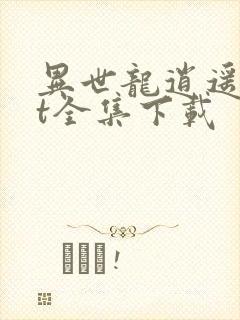 異世龍逍遥
t全集下載
!